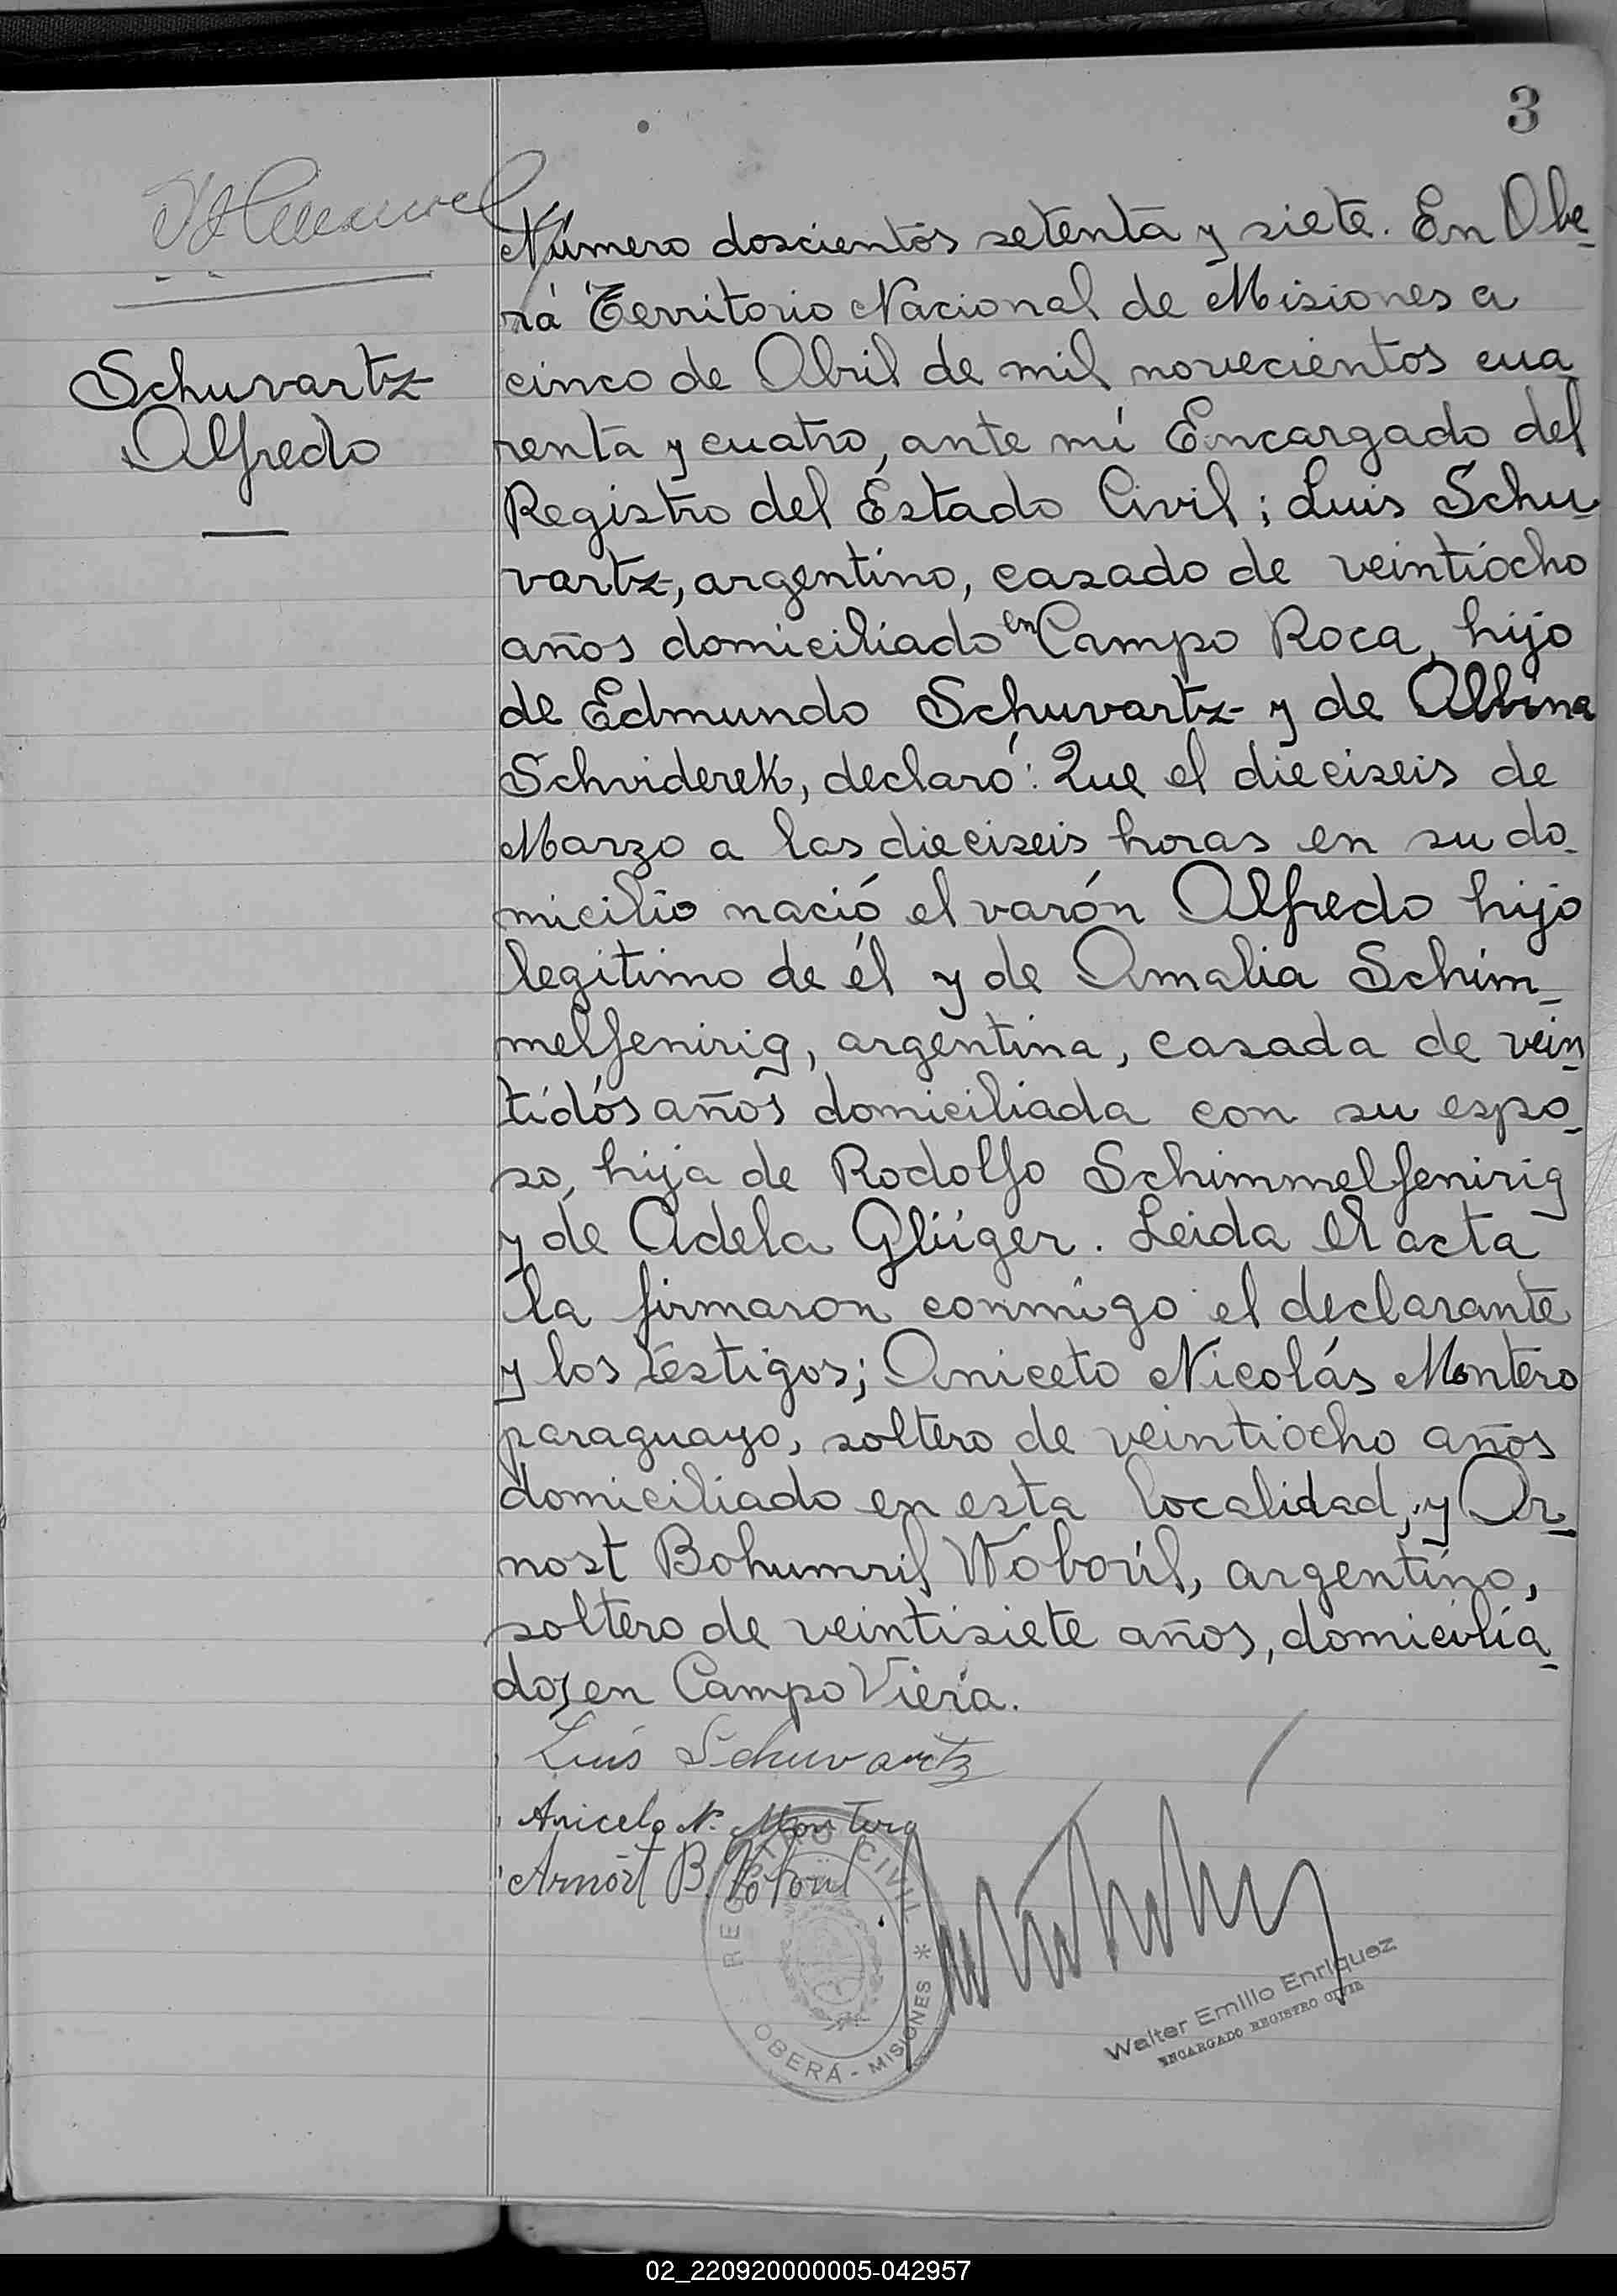 3
Número doscientos setenta y siete. En Obe-
rá Territorio Nacional de Misiones a
Schuvartz
Alfredo
cinco de Abril de mil novecientos cua
renta y cuatro, ante mí Encargado del
Registro del Estado Civil; Luis Schu-
vartz, argentino, casado de veintiocho
años domiciliado en Campo Roca, hijo
de Edmundo Schuvartz y de Albina
Schviderek, declaró: Que el dieciseis de
Marzo a las dieciseis horas en su do-
micilio nació el varón Alfredo hijo
legitimo de él y de Amalia Schim-
melfenirig, argentina, casada de vein-
tidós años domiciliada con su espo-
so, hija de Rodolfo Schimmelfenirig
y de Adela Glüger. Leida el acta
la firmaron conmigo el declarante
y los testigos; Aniceto Nicolás Montero
paraguayo, soltero de veintiocho años
domiciliado en esta localidad, y Ar-
nost Bohumril Woborúl, argentino,
soltero de veintisiete años, domicilia-
dos en Campo Viera.
Luis Schuvartz
Aniceto N. Montero
Arnost B.
REGISTRO CIVIL * OBERÁ - MISIONES
Walter Emilio Enriquez
ENCARGADO REGISTRO CIVIL
02_220920000005-042957